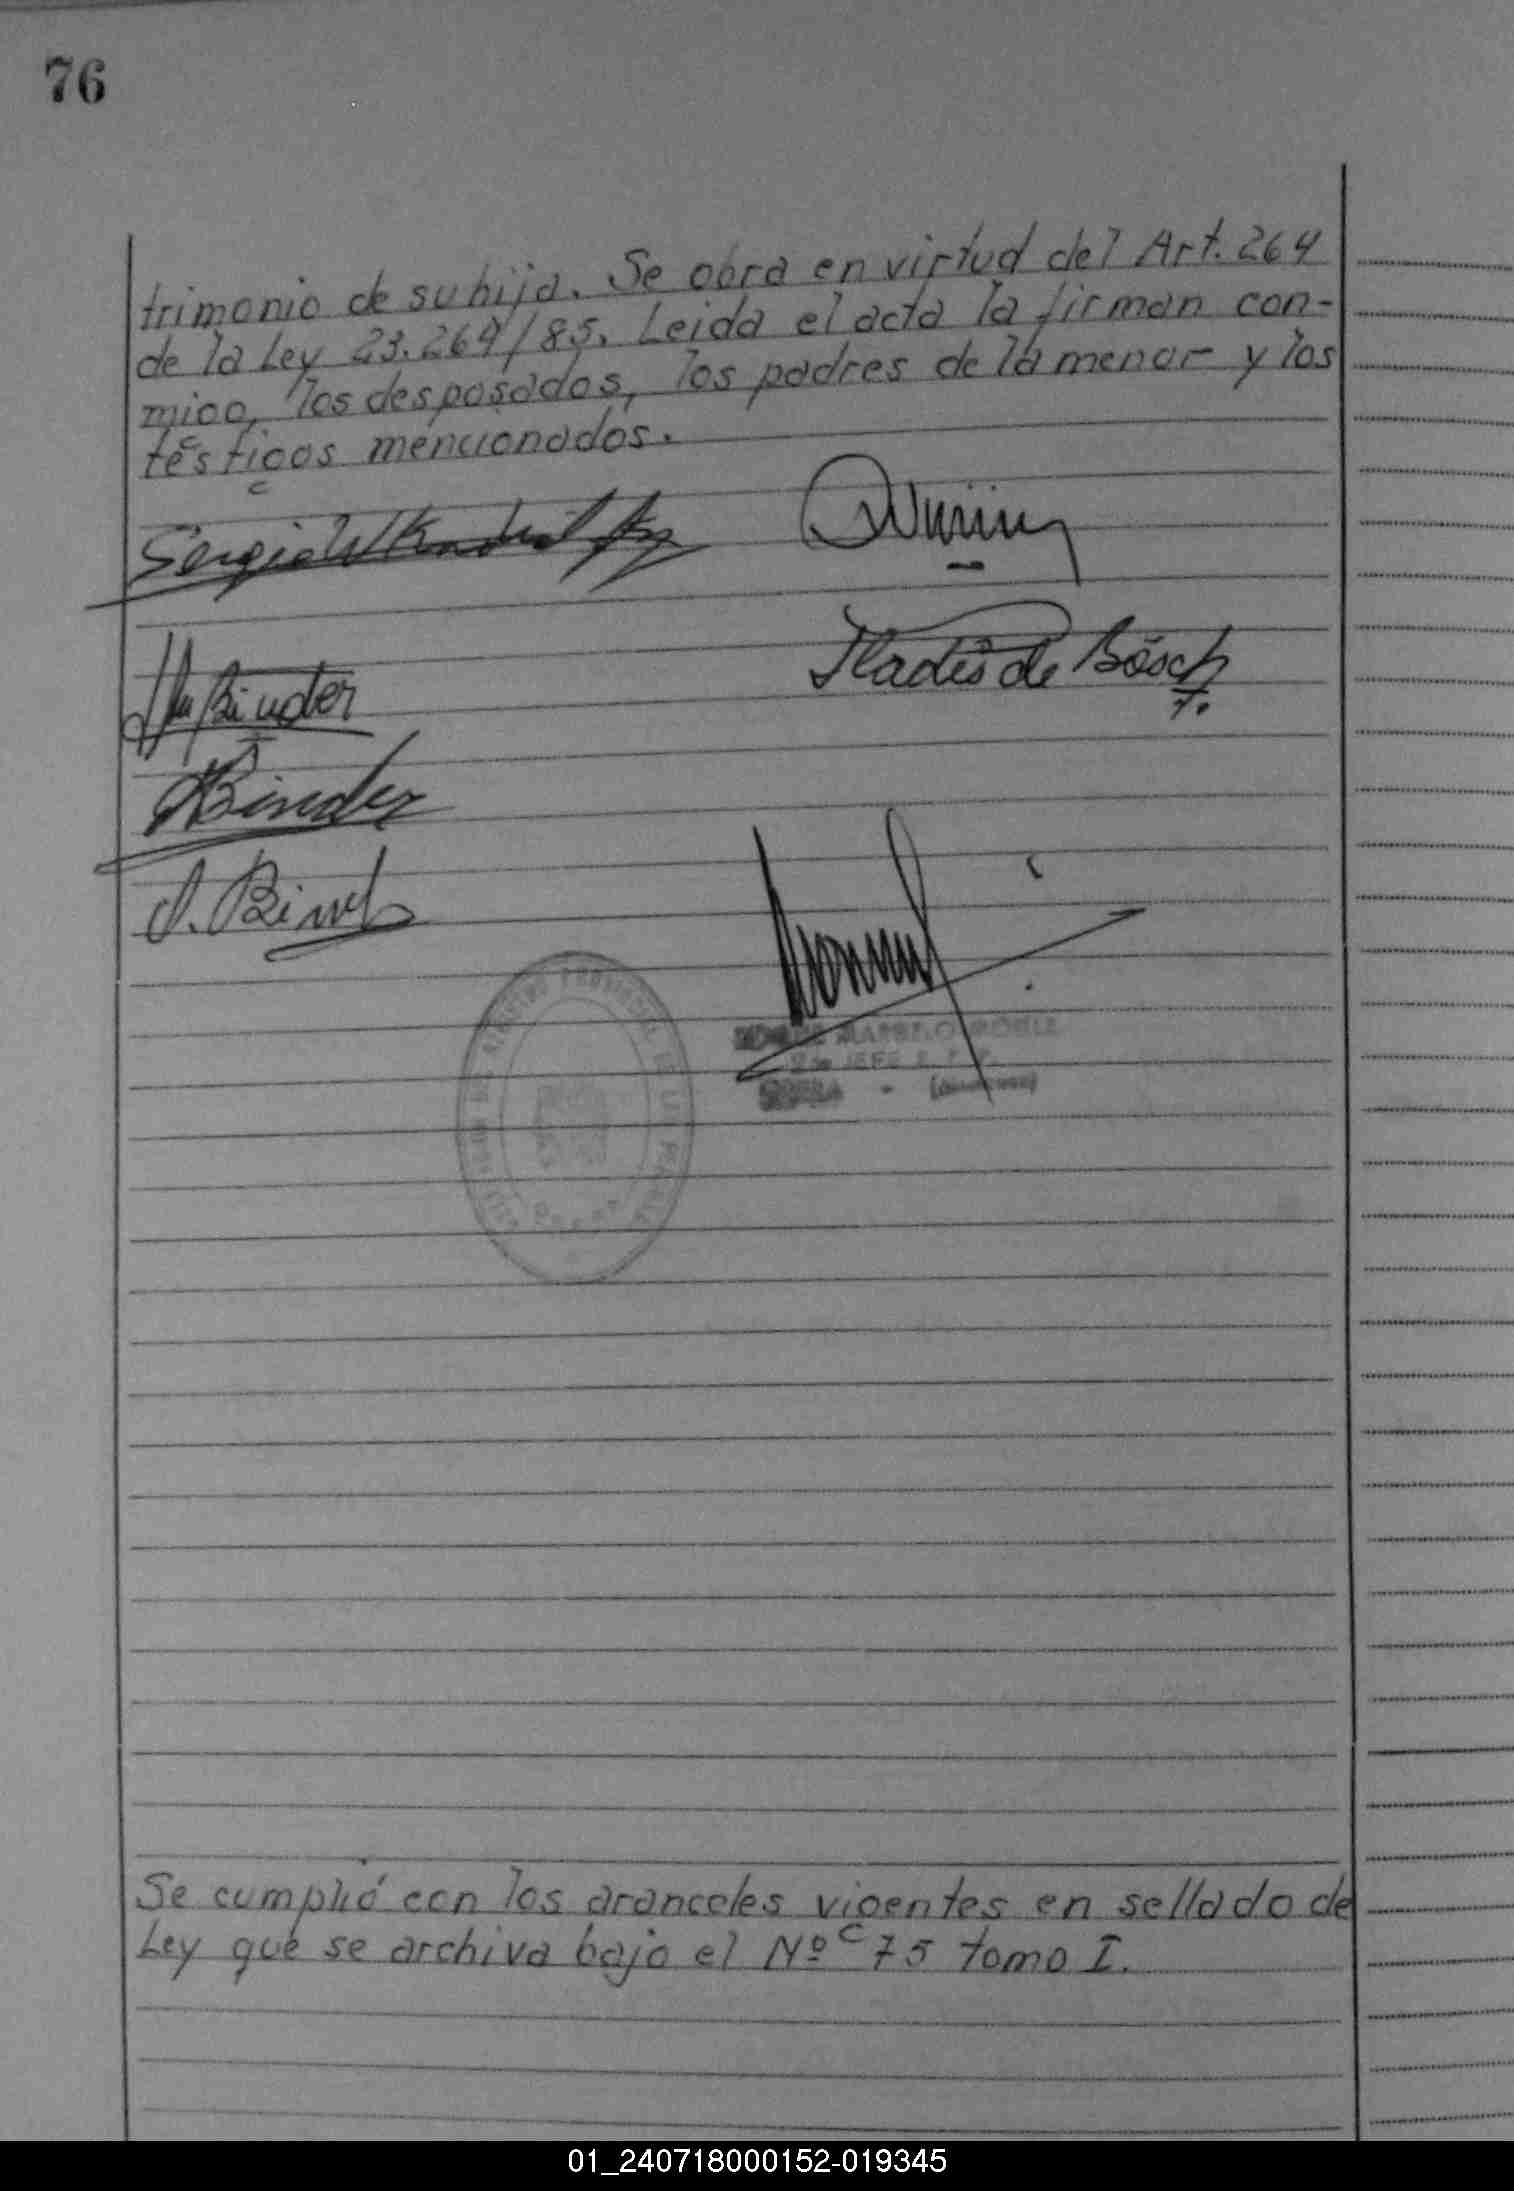 76
trimonio de su hija. Se obra en virtud del Art. 264
de la Ley 23.264/85. Leida el acta la firman con-
migo, los desposados, los padres de la menor y los
testigos mencionados.
Binder
de Bösch
Binder
REGISTRO PROVINCIAL DE LAS PERSONAS
2do JEFE R. P. P.
OBERA - (Misiones)
Se cumplió con los aranceles vigentes en sellado de
Ley que se archiva bajo el Nº 75 tomo I.
01_240718000152-019345